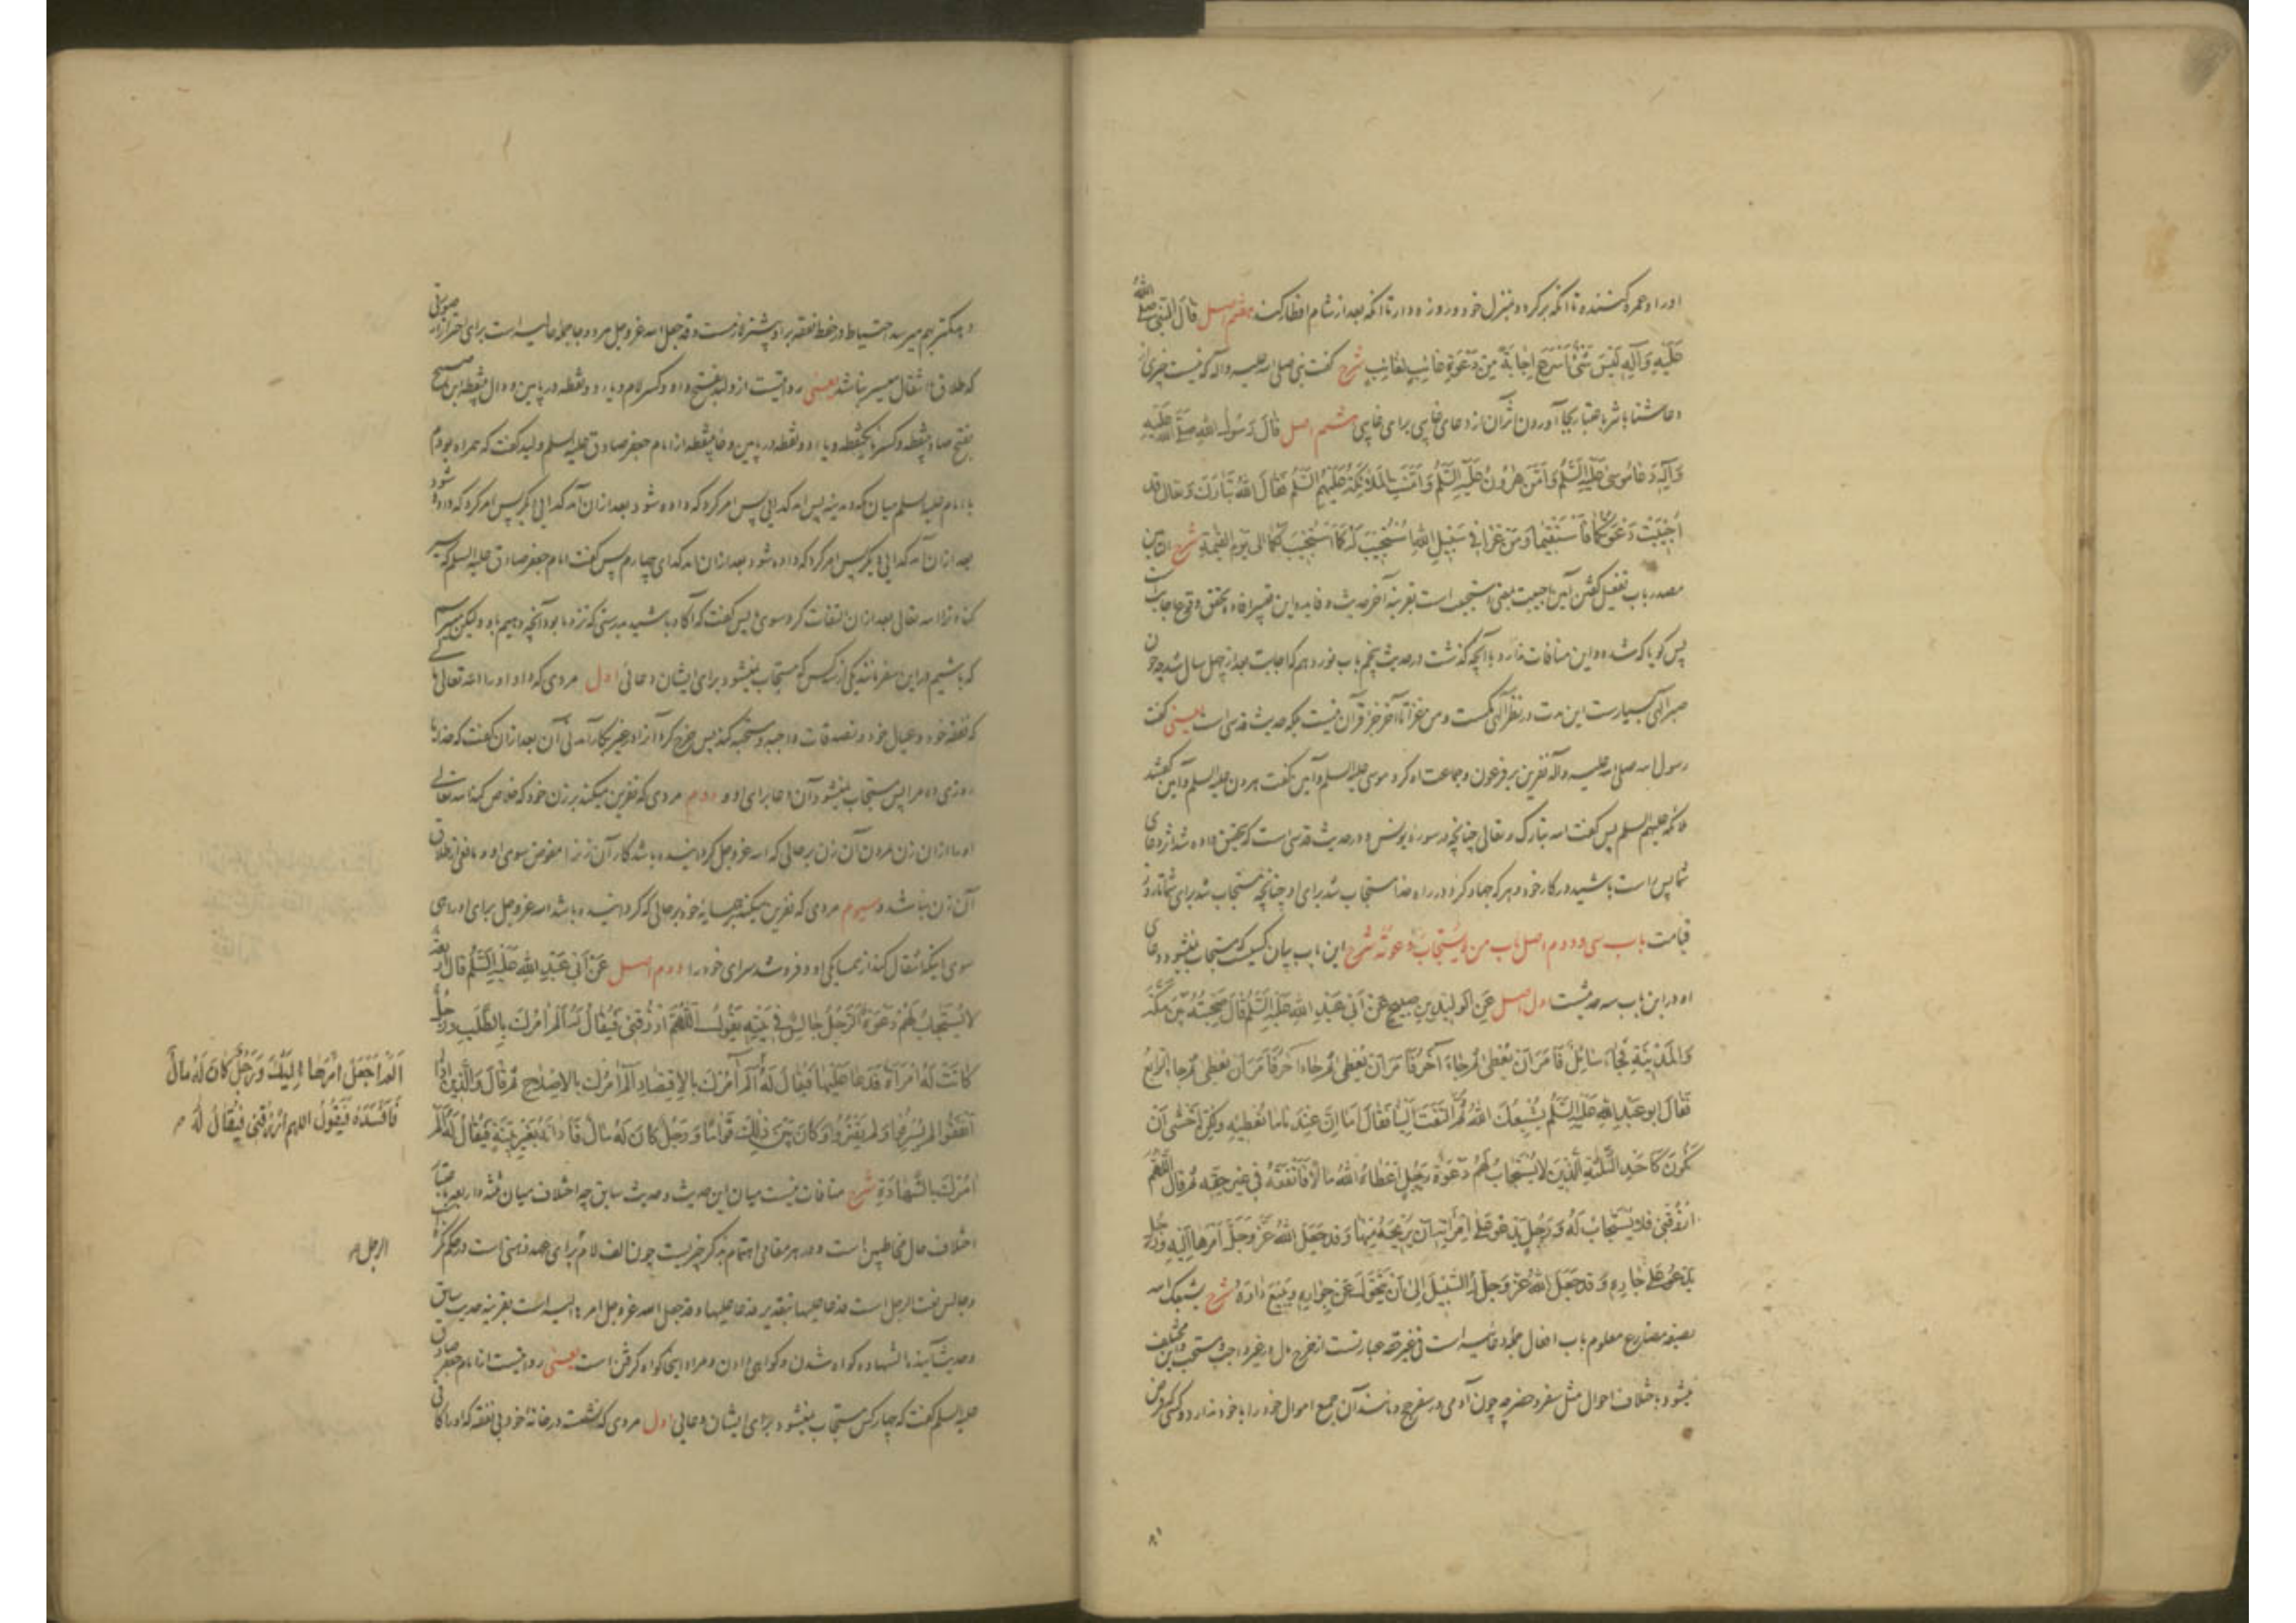 او را و عمره کننده تا آنکه برگردد بمنزل خود و روزه دار تا آنکه بعد از شام افطار کند هفتم اصل قال النبی صلی الله
علیه وآله لیس شیء اسرع اجابة من دعوة غائب لغائب شرح گفت نبی صلی الله علیه وآله که نیست چیزی از
دعا شتابانتر باعتبار بجا آوردن آن از دعای غایبی برای غایبی هشتم اصل قال رسول الله صلی الله علیه
وآله دعا موسی علیه السلم وامن هرون علیه السلم وامنت الملائکة علیهم السلم فقال الله تبارک وتعالی قد
اجیبت دعوتکما فاستقیما ومن غزا فی سبیل الله استجیب له کما استجیب لکما الی یوم القیمة شرح التأمین
مصدر باب تفعیل گفتن آمین اجیبت بمعنی استجیب است بقرینهٔ آخر حدیث و فایده این تفسیر افاده تحقق وقوع اجابت است
پس گویا که شده و این منافات ندارد با آنچه گذشت در حدیث پنجم باب نوزدهم که اجابت بعد از چهل سال شد چون
صبر الهی بسیارست این مدت در نظر الهی کمست و من غزا تا آخر جزء قرآن نیست بلکه حدیث قدسی است یعنی گفت
رسول الله صلی الله علیه وآله نفرین بر فرعون و جماعت او کرد موسی علیه السلم و آمین گفت هرون علیه السلم و آمین گفتند
ملائکه علیهم السلم پس گفت الله تبارک و تعالی چنانچه در سورهٔ یونس و در حدیث قدسی است که بتحقیق داده شد اثر دعای
شما پس راست باشید در کار خود و هر که جهاد کرد در راه خدا مستجاب شد برای او چنانچه مستجاب شد برای شما تا روز
قیامت باب سی و دوم اصل باب من لا یستجاب دعوته شرح این باب بیان کسیست که مستجاب نمیشود دعای
او در این باب سه حدیثست اول اصل عن الولید بن صبیح عن ابی عبد الله علیه السلم قال صحبته بین مکة
والمدینة فجاء سائل فامر ان یعطی ثم جاء آخر فامر ان یعطی ثم جاء آخر فامر ان یعطی ثم جاء الرابع
فقال ابو عبد الله علیه السلم یشبعک الله ثم التفت الینا فقال اما ان عندنا ما نعطیه ولکن اخشی ان
نکون کاحد الثلثة الذین لا یستجاب لهم دعوة رجل اعطاه الله مالا فانفقه فی غیر حقه ثم قال اللهم
ارزقنی فلا یستجاب له ورجل یدعو علی امرأته ان یریحه منها وقد جعل الله عز وجل امرها الیه ورجل
یدعو علی جاره وقد جعل الله عز وجل له السبیل الی ان یتحول عن جواره ویبیع داره شرح یشبعک الله
بصیغه مضارع معلوم باب افعال جمله دعائیه است فی غیر حقه عبارتست از خرج مال در غیر واجب و مستحب و این مختلف
میشود باختلاف احوال مثل سفر و حضر چه چون آدمی در سفر حج و مانند آن جمیع اموال خود را با خود ندارد و کسی که قرض
دهد کمتر بهم میرسد احتیاط در حفظ نفقه بر او بیشتر لازمست وقد جعل الله عز وجل هر دو جا جمله حالیه است برای احتراز از صورتی
که طلاق یا انتقال میسر نباشد یعنی روایتست از ولید بفتح واو و کسر لام و یاء دو نقطه در پایین و دال بینقطه ابن صبیح
بفتح صاد بینقطه و کسر باء یکنقطه و یاء دو نقطه در پایین و حاء بینقطه از امام جعفر صادق علیه السلم ولید گفت که همراه بودم
با امام علیه السلم میان مکه و مدینه پس آمد گدایی پس امر کرد که داده شود بعد از آن آمد گدایی دیگر پس امر کرد که داده شود
بعد از آن آمد گدایی دیگر پس امر کرد که داده شود بعد از آن آمد گدای چهارم پس گفت امام جعفر صادق علیه السلم که سیر
کناد ترا الله تعالی بعد از آن التفات کرد سوی ما پس گفت که آگاه باشید بدرستی که نزد ما بود آنچه دهیم باو و لیکن میترسم
که باشیم در این سفر مانند یکی از سه کس که مستجاب نمیشود برای ایشان دعائی اول مردی که داد او را الله تعالی مالی
که نفقه خود و عیال خود و تصدقات واجبه و مستحبه کند پس خرج کرد آنرا در غیر کارآمدنی آن بعد از آن گفت که خدایا
روزی ده مرا پس مستجاب نمیشود آن دعا برای او و دوم مردی که نفرین میکند بر زن خود که خلاص کند الله تعالی
او را از آن زن بمردن آن زن بر حالی که الله عز وجل گردانیده باشد کار آن زن را مفوض سوی او و مانعی از طلاق
آن زن نباشد و سیوم مردی که نفرین میکند بر همسایهٔ خود بر حالی که گردانیده باشد الله عز وجل برای او راهی
سوی اینکه انتقال کند از همسایگی او و فروشد سرای خود را دوم اصل عن ابی عبد الله علیه السلم قال اربعة
لا یستجاب لهم دعوة الرجل جالس فی بیته یقول اللهم ارزقنی فیقال له الم آمرک بالطلب ورجل
کانت له امرأة فدعا علیها فیقال له الم آمرک بالاقتصاد الم آمرک بالاصلاح ثم قال والذین اذا
انفقوا لم یسرفوا ولم یقتروا وکان بین ذلک قواما ورجل کان له مال فادانه بغیر بینة فیقال له الم
آمرک بالشهادة شرح منافات نیست میان این حدیث و حدیث سابق چه اختلاف میان ثلثه و اربعه باعتبار
اختلاف حال مخاطبین است و در هر مقامی اهتمام بذکر چیزیست چون الف لام برای عهد ذهنی است در حکم نکره است
و جالس نعت الرجل است فدعا علیها بتقدیر فدعا علیها وقد جعل الله عز وجل امرها الیه است بقرینهٔ حدیث سابق
و حدیث آینده الشهاده گواه شدن و گواهی دادن و مراد اینجا گواه گرفتن است یعنی روایتست از امام جعفر صادق
علیه السلم گفت که چهار کس مستجاب نمیشود برای ایشان دعایی اول مردی که نشست در خانهٔ خود بی نفقه که او را کافی
الم اجعل امرها الیک ورجل کان له مال
فافسده فیقول اللهم ارزقنی فیقال له
الرجل